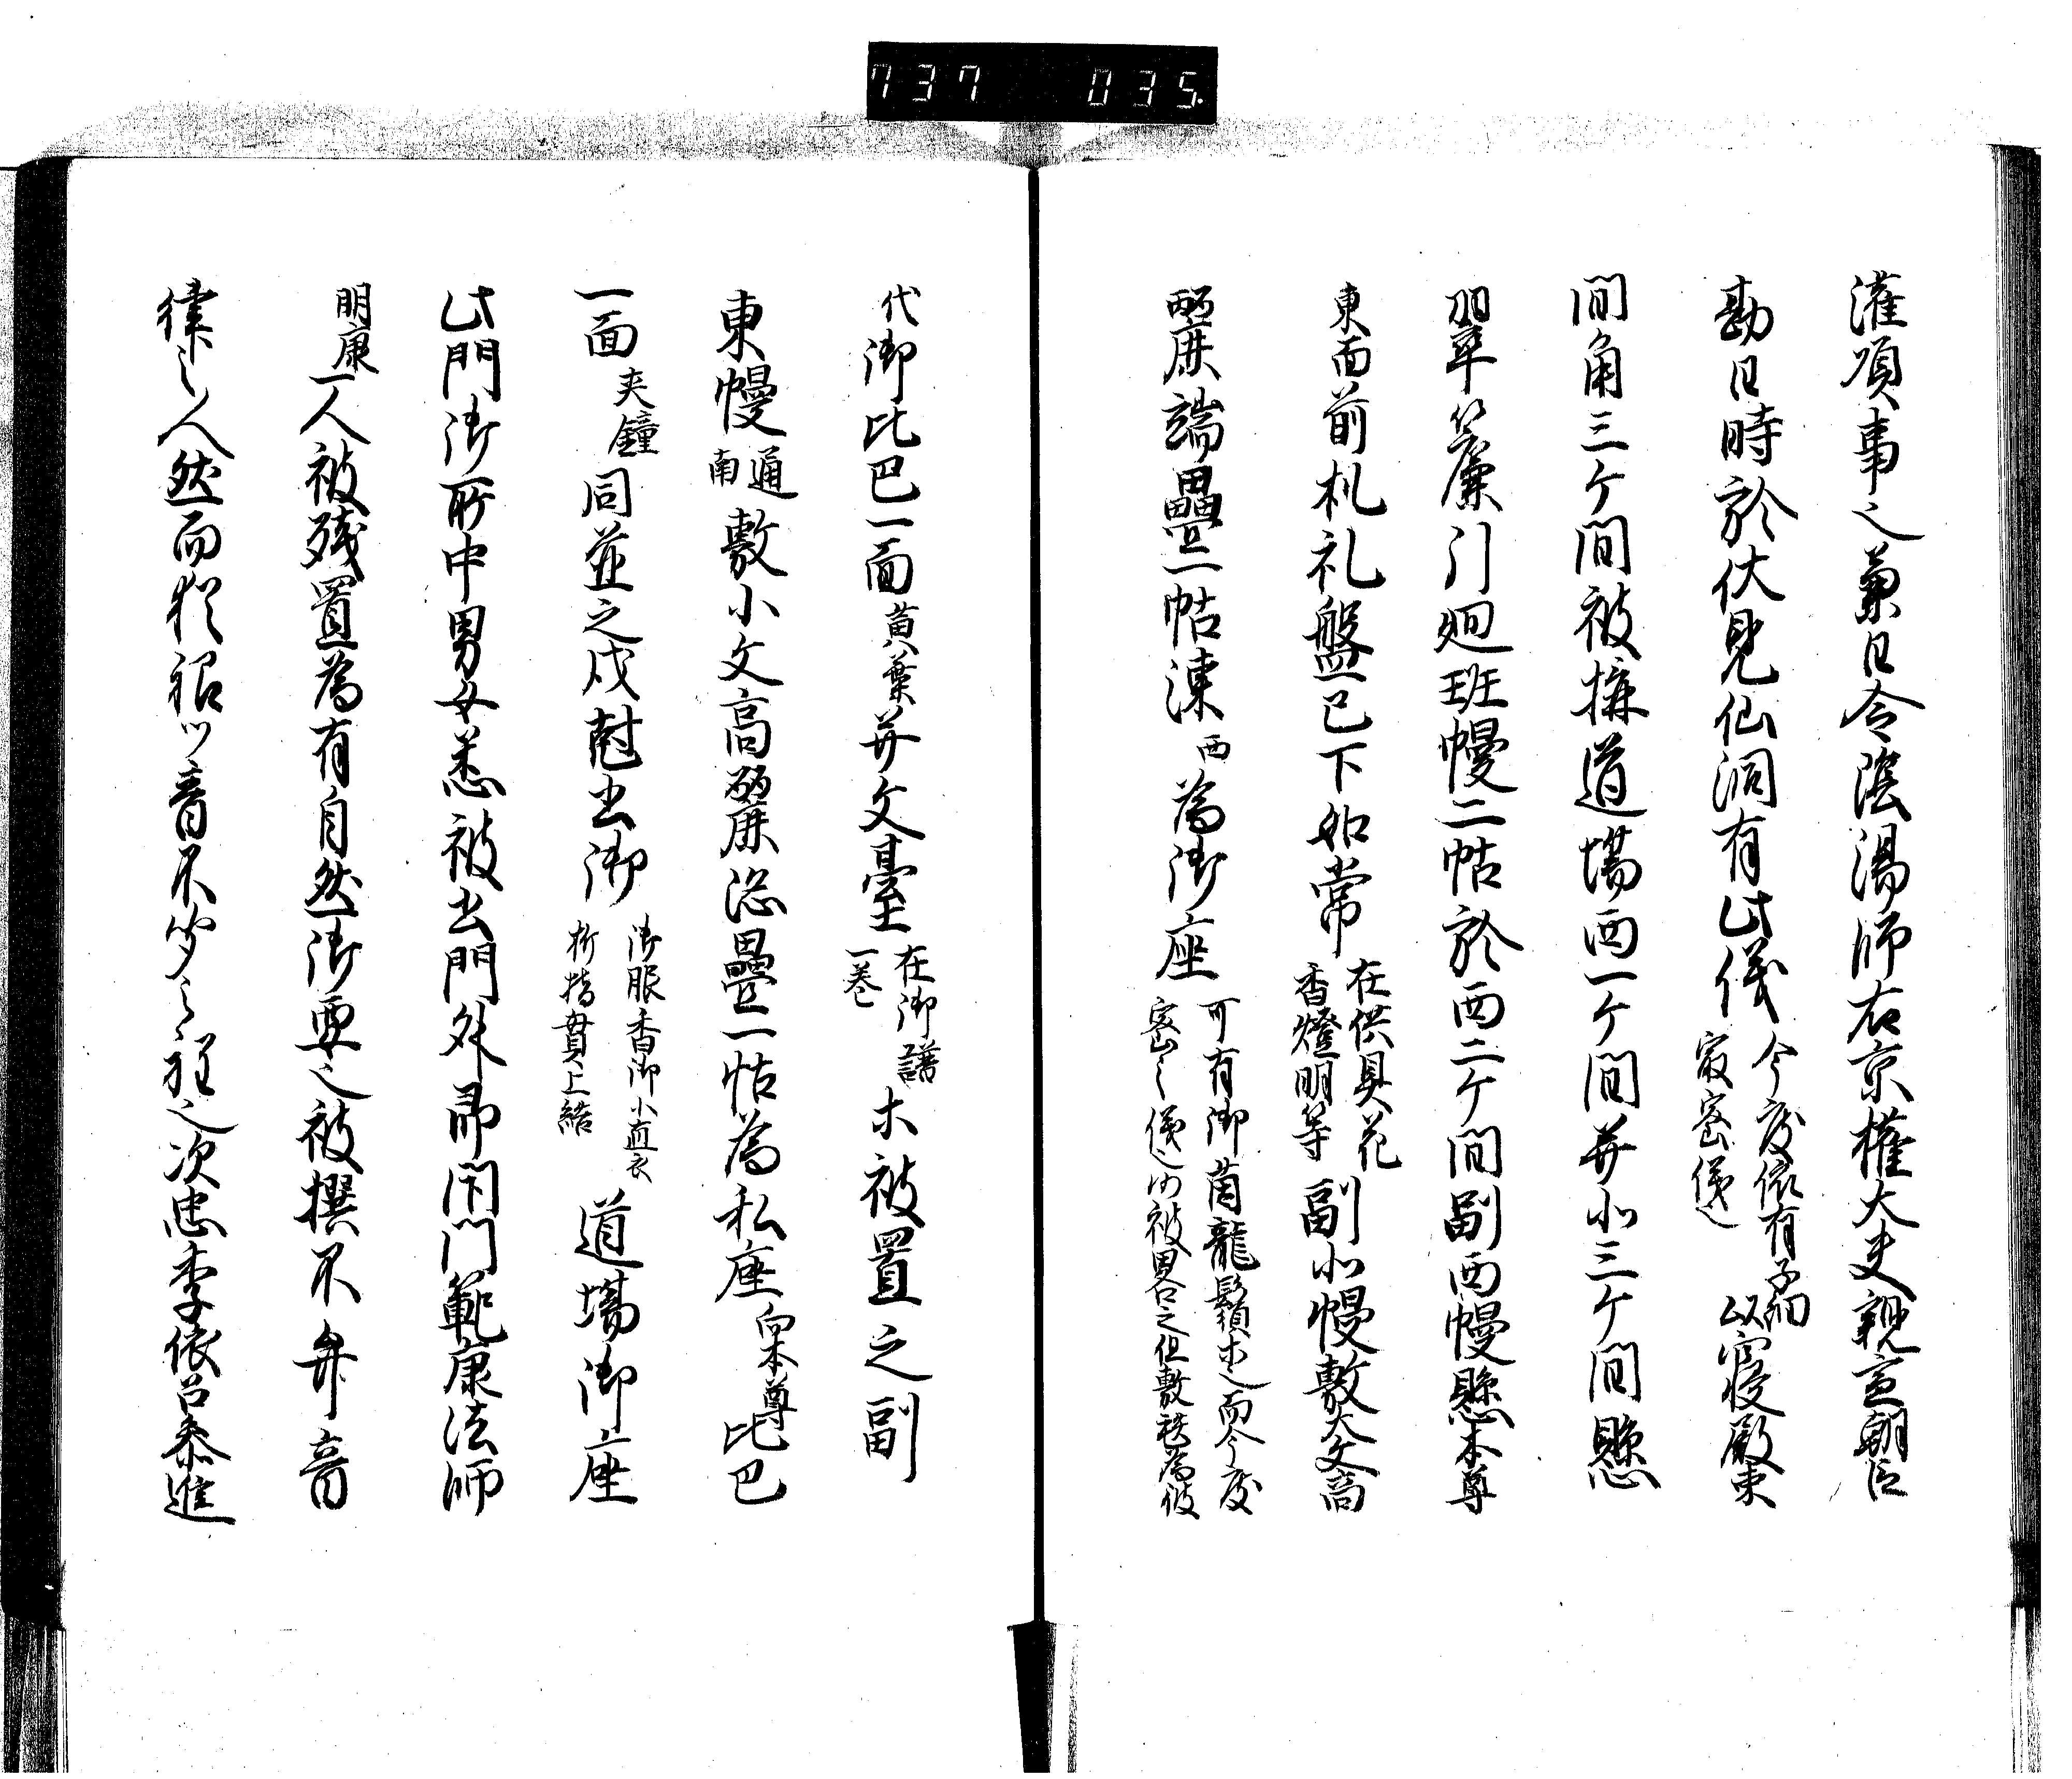 737 035
灌頂事之兼日令陰陽師右京権大夫親宣朝臣
勘日時於伏見仙洞有此儀
今度依有子細
最密儀也
以寝殿東
間角三ケ間被搆道場西一ケ間并北三ケ間懸
翠簾引廻班幔二帖於西二ケ間副西幔懸本尊
東面前机礼盤已下如常
在供具花
香燈明等
副北幔敷大文高
麗端疊二帖東西為御座
可有御茵龍鬢木也而今度
密々儀也仍被畧之但敷
代御比巴一面
黄葉
并文臺
在御譜
一巻
木被置之副
東幔
通
南
敷小文高麗疊一帖為私座
向本尊
比巴
一面
夹鐘
同並之戌尅出御
御服香御小直衣
折指貫上結
道場御座
此門御所中男女悉被出門外即閇門範康法師
明康
一人被残置為有自然御要也被撰不弁音
律之人然而猶
音不
之程也次忠季依召参進